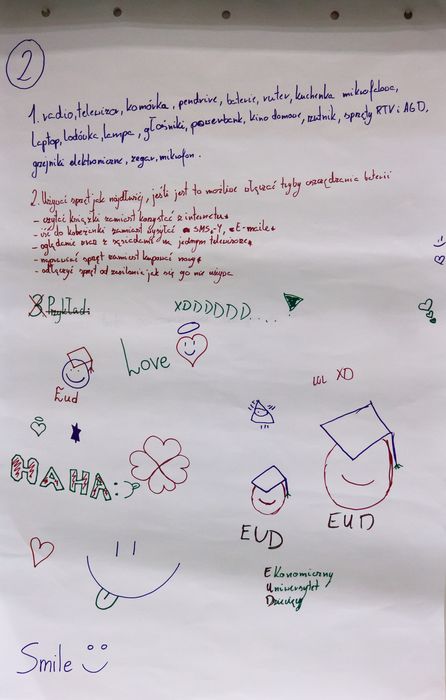 2
1. radio, telewizor, komórka, pendrive, baterie, ruter, kuchenka mikrofalowa,
laptop, lodówka, lampa, głośniki, powerbank, kino domowe, rzutnik, sprzęty RTV i AGD,
grzejniki elektroniczne, zegar, mikrofon.
2. Używać sprzęt jak najdłużej, jeśli jest to możliwe włączać tryby oszczędzania baterii
- czytać książki zamiast korzystać z internetu
- iść do koleżanki zamiast wysyłać SMS-Y, E-maile
- oglądanie z sąsiadami na jednym telewizorze
- naprawiać sprzęt zamiast kupować nowy
- odłączyć sprzęt od zasilania jak się go nie używa
3. Przykładi
XDDDDDD....
Love
Eud
LOL XD
HAHA:
EUD
EUD
EKonomiczny
Uniwersytet
Dziecięcy
Smile